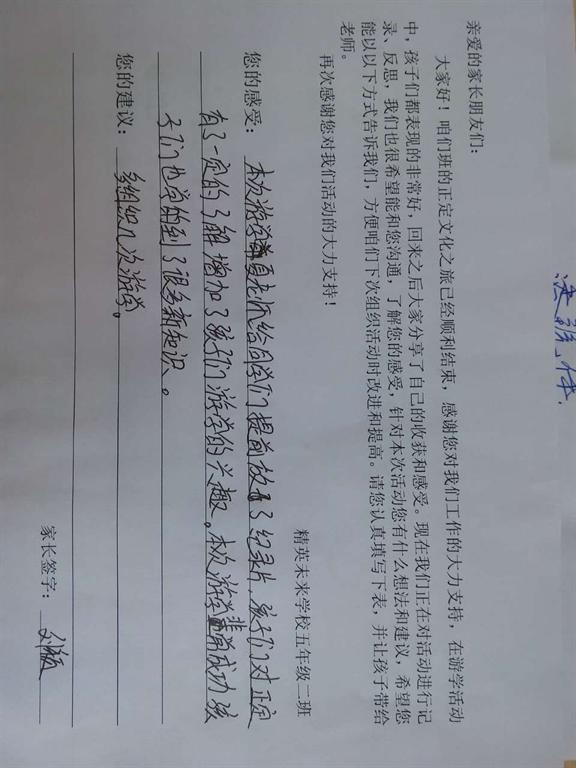 亲爱的家长朋友们：
大家好！咱们班的正定文化之旅已经顺利结束，感谢您对我们工作的大力支持，在游学活动
中，孩子们都表现的非常好，回来之后大家分享了自己的收获和感受。现在我们正在对活动进行记
录、反思，我们也很希望能和您沟通，了解您的感受，针对本次活动您有什么想法和建议，希望您
能以以下方式告诉我们，方便咱们下次组织活动时改进和提高。请您认真填写下表，并让孩子带给
老师。
再次感谢您对我们活动的大力支持！
精英未求学校五年级二班
您的感受：本次游学夏老师给同学们提前放了纪录片，孩子们对正定
有了一定的了解 增加了孩子们游学的兴趣。本次游学非常成功 孩
子们也学到了很多新知识。
您的建议：多组织几次游学。
家长签字：